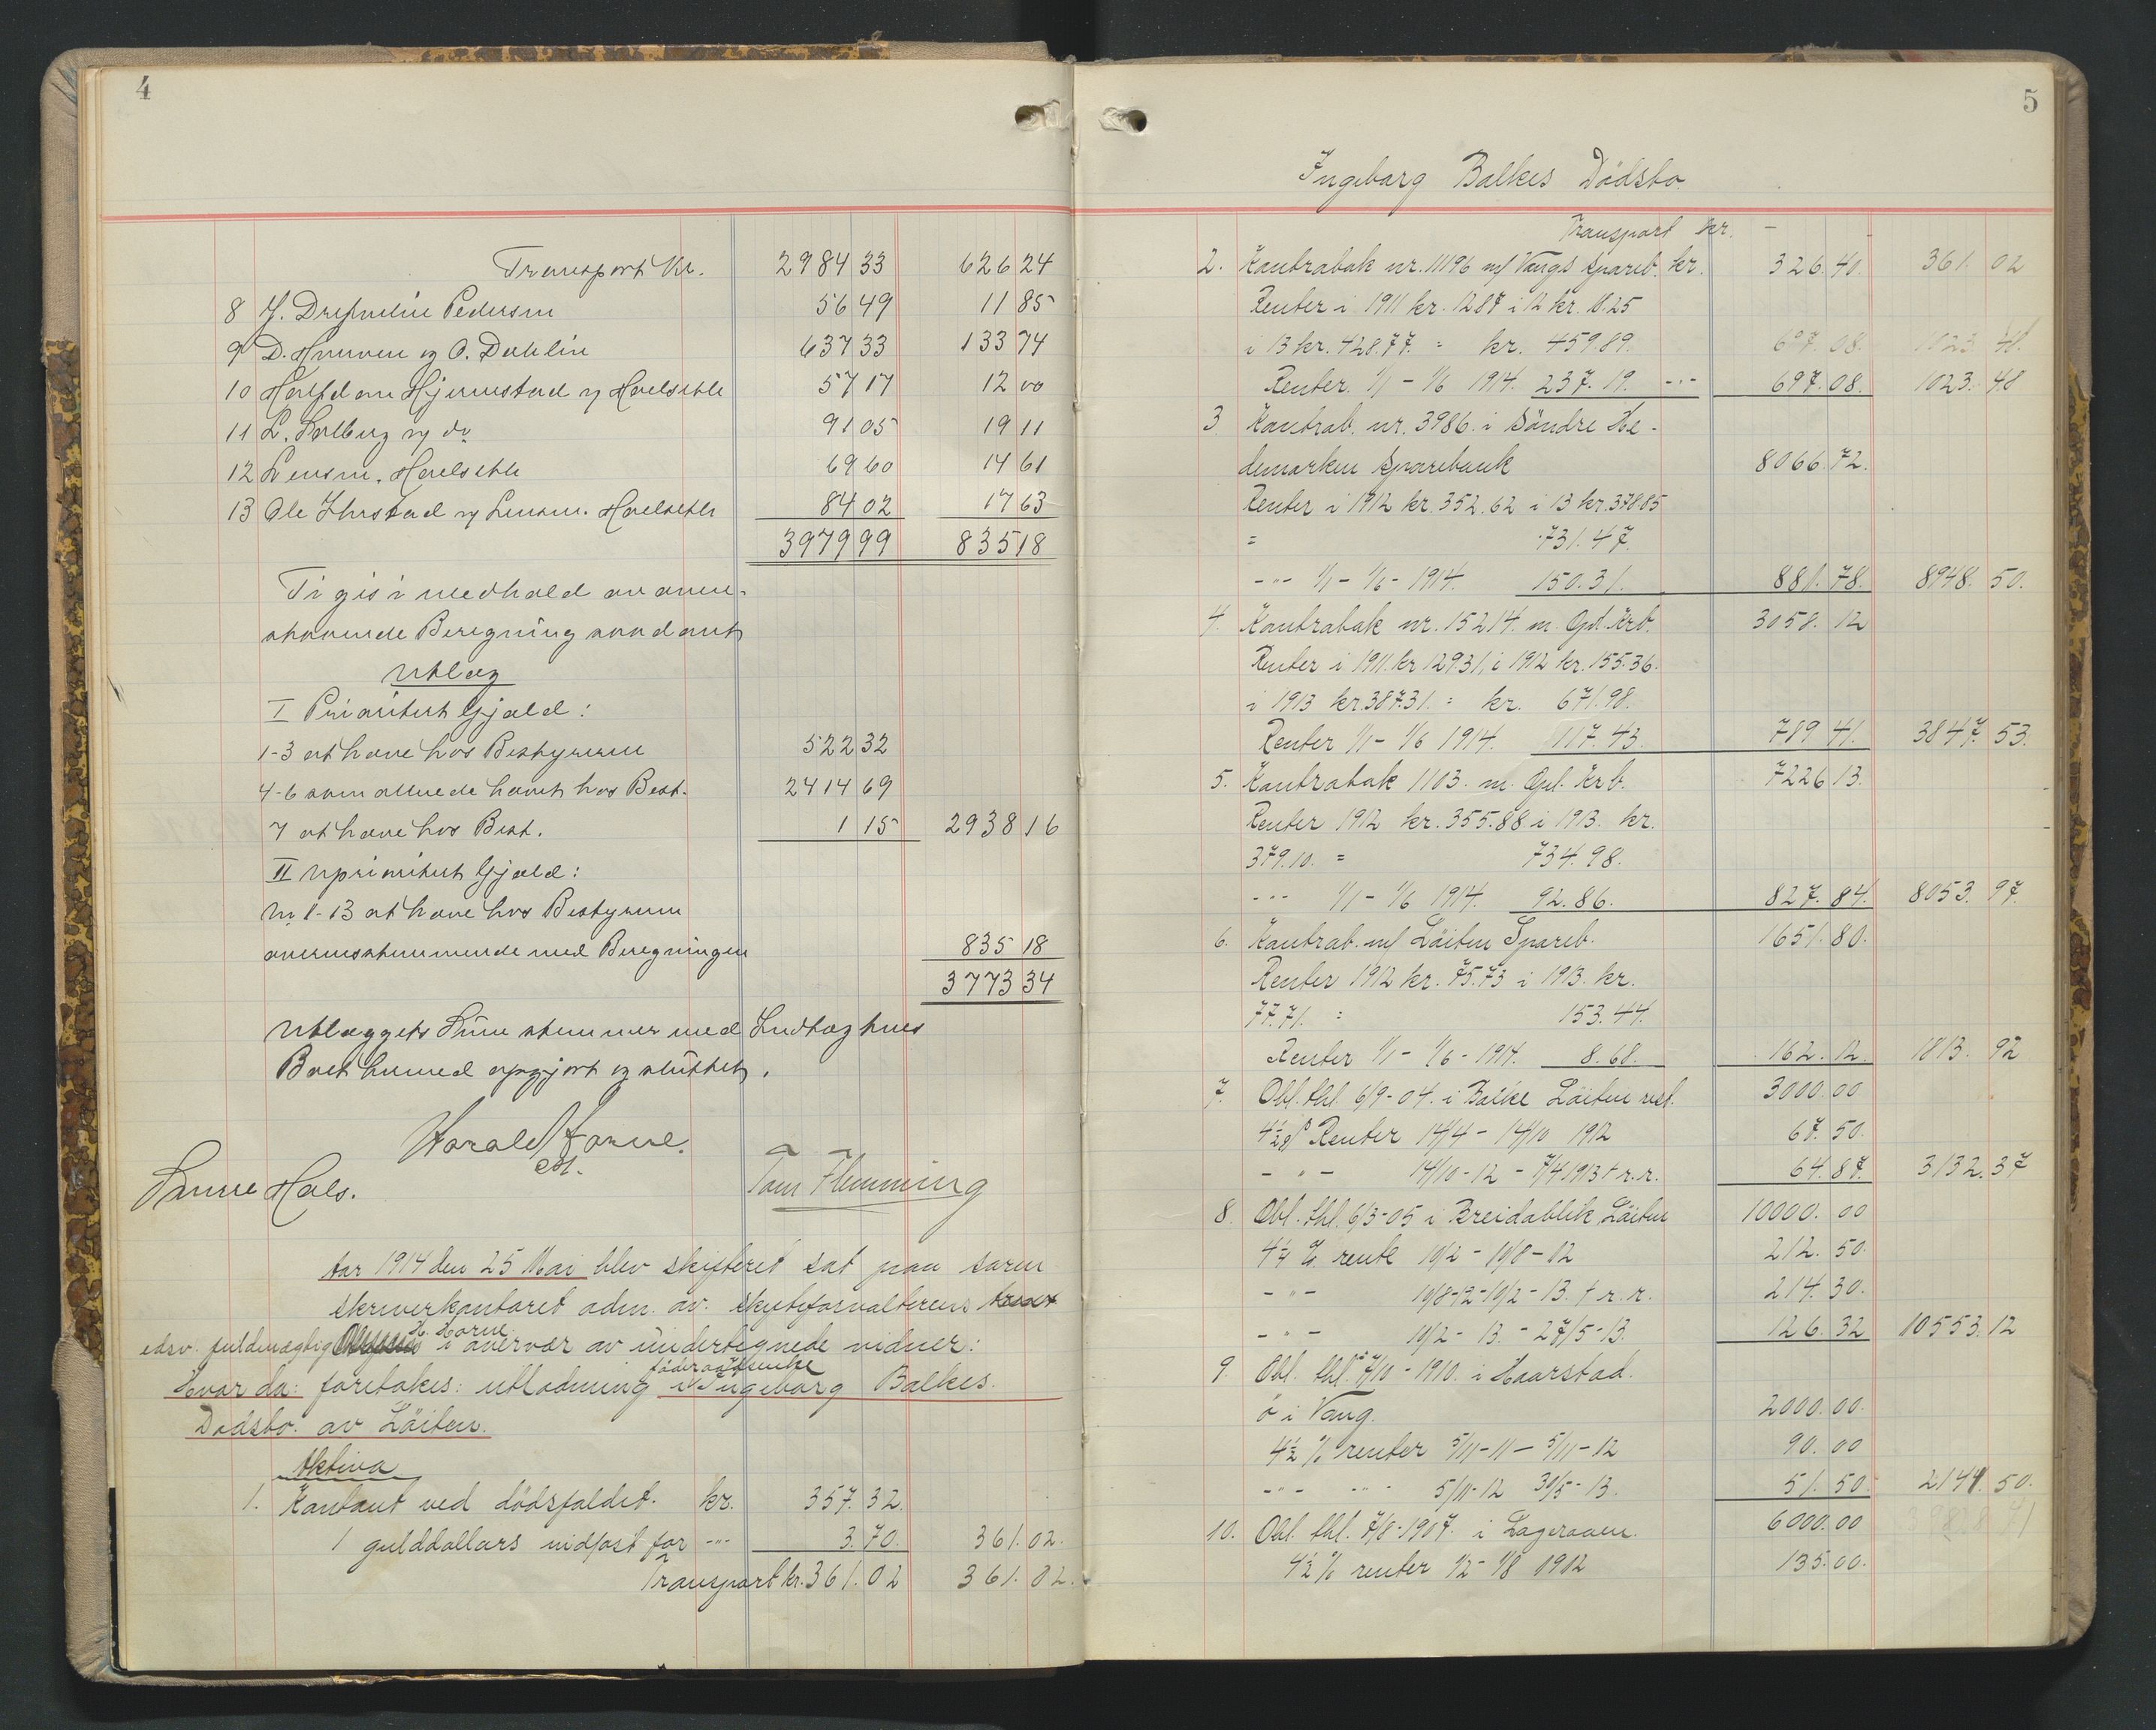 4
Transport Kr. 2984 33 626 24
8 J. Drefvelin Pedersen 56 49 11 85
9 D. Hverven og O. Dæhlin 637 33 133 74
10 Halfdan Hjermstad og Hoelseth 57 17 12 00
11 L. Solberg og do 91 05 19 11
12 Lensm. Hoelseth 69 60 14 61
13 Ole Ihrstad og Lensm. Hoelseth 84 02 17 63
3979 99 835 18
Ti gis i medhold av oven-
staaende Beregning saadant
Utlæg
I Prioritert Gjæld:
1-3 at have hos Bestyreren 522 32
4-6 som allerede hævet hos Best. 2414 69
7 at have hos Best. 1 15 2938 16
II Uprioritert Gjæld:
Nr 1-13 at have hos Bestyreren
overensstemmende med Beregningen 835 18
3773 34
Utlæggets Sum stemmer med Indtægtenes
Boet hermed opgjort og sluttet.
Harald Horne
cst.
Hals. Tom Flemming
Aar 1914 den 25 Mai blev skifteret sat paa soren
skriverkontoret adm. av. skifteforvalterens
edsv. fuldmægtig H. Horne i overvær av undertegnede vidner:
Hvor da: foretakes: utlodning i föderaadsenke Ingeborg Balkes.
Dødsbo. av Löiten.
Aktiva
1. Kontant ved dödsfaldet. kr. 357. 32.
1 gulddollars indløst for -"- 3. 70. 361. 02.
Transport kr. 361. 02 361. 02.
5
Ingeborg Balkes Dödsbo.
Transport kr. -
2. Kontrabok nr. 11196 m/ Vangs Spareb. kr. 326. 40. 361. 02
Renter i 1911 kr. 12.87 i 12 kr. 18.25
i 13 kr. 428.77. = kr. 459 89. 697. 08. 1023. 48.
Renter 1/1 - 1/6 1914. 237. 19. -"- 697. 08. 1023. 48
3 Kontrab. nr. 3986. i Söndre He-
demarken Sparebank 8066. 72.
Renter i 1912 kr. 352.62 i 13 kr. 378.85
= 731. 47.
-"- 1/1 - 1/6 - 1914. 150. 31. 881. 78. 8948. 50.
4. Kontrabok nr. 15214. m. Opl. Krb. 3058. 12
Renter i 1911 kr 129.31, i 1912 kr. 155.36.
i 1913 kr. 387.31. = kr. 671. 98.
Renter 1/1 - 1/6 1914. 117. 43. 789. 41. 3847. 53.
5. Kontrabok 1103. m. Opl. Krb. 7226 13.
Renter 1912 kr. 355.88 i 1913. kr.
379.10. = 734. 98.
-"- 1/1 - 1/6 1914. 92. 86. 827. 84. 8053. 97.
6. Kontrab. m/ Löiten Spareb. 1651. 80.
Renter 1912 kr. 75.73 i 1913. kr.
77.71. = 153. 44.
Renter 1/1 - 1/6 - 1914. 8. 68. 162. 12. 1813. 92
7. Obl. thl. 6/9-04. i Balke Löiten rest. 3000. 00
4½ % Renter 14/4 - 14/10 1912 67. 50.
- " - 14/10-12 - 7/4 1913 + r. r. 64. 87. 3132. 37
8. Obl. thl. 6/3-05 i Breidablik, Löiten 10000. 00
4¼ % rente 10/2 - 10/8 - 12 212. 50.
- " - 10/8-12 - 10/2 - 13. + r. r. 214. 30.
- " - 10/2 - 13. - 27/5-13. 126. 32 10553. 12
9. Obl. thl. 7/10 - 1910. i Haarstad.
ö i Vang. 2000. 00.
4½ % renter 5/11-11 - 5/11-12 90. 00
-"- -"- 5/11-12 30/5-13. 51. 50. 2141. 50.
10. Obl. thl. 7/8-1907. i Lageraaen. 6000. 00
4½ % renter 1/2 - 1/8 1912 135. 00.